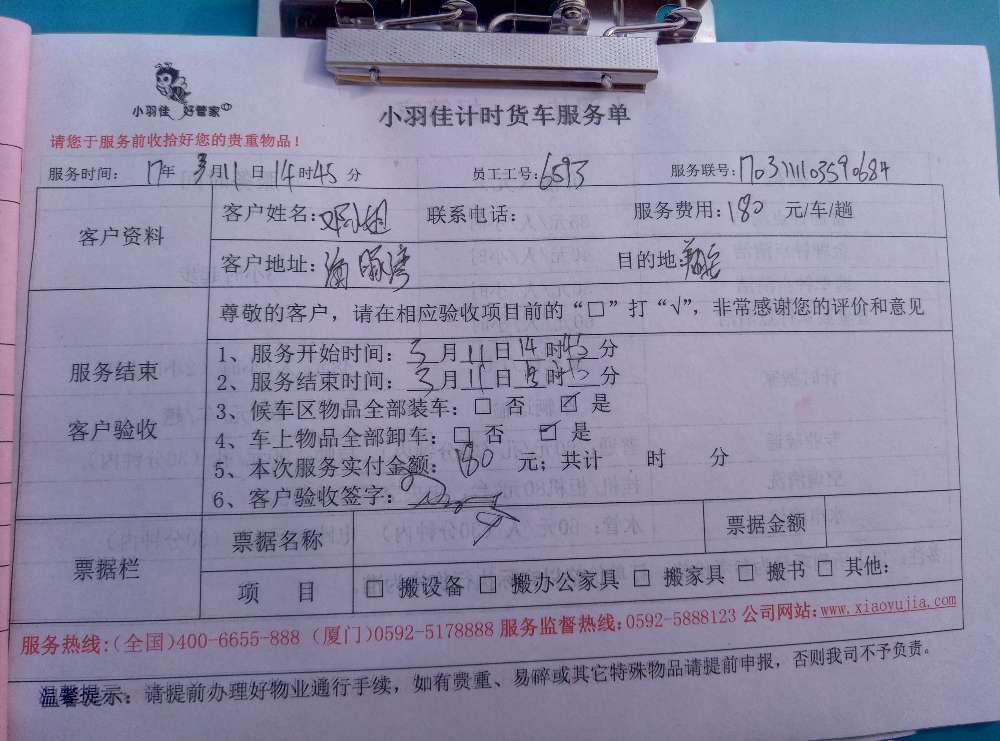 小羽佳 好管家
小羽佳计时货车服务单
请您于服务前收拾好您的贵重物品！
服务时间： 17年 3月11日14时45分 员工工号：6593 服务联号：170311110359068
客户资料 客户姓名：邓小姐 联系电话： 服务费用：180 元/车/趟
客户地址：海豚湾 目的地：
尊敬的客户，请在相应验收项目前的“□”打“√”，非常感谢您的评价和意见
服务结束
客户验收
1、服务开始时间：3月11日14时45分
2、服务结束时间：3月11日 时15分
3、候车区物品全部装车：□ 否 ☑ 是
4、车上物品全部卸车：□ 否 ☑ 是
5、本次服务实付金额：180 元；共计 时 分
6、客户验收签字：
票据栏 票据名称 票据金额
项 目 □ 搬设备 □ 搬办公家具 □ 搬家具 □ 搬书 □ 其他：
服务热线：(全国)400-6655-888 (厦门)0592-5178888 服务监督热线：0592-5888123 公司网站：www.xiaoyujia.com
温馨提示：请提前办理好物业通行手续，如有贵重、易碎或其它特殊物品请提前申报，否则我司不予负责。